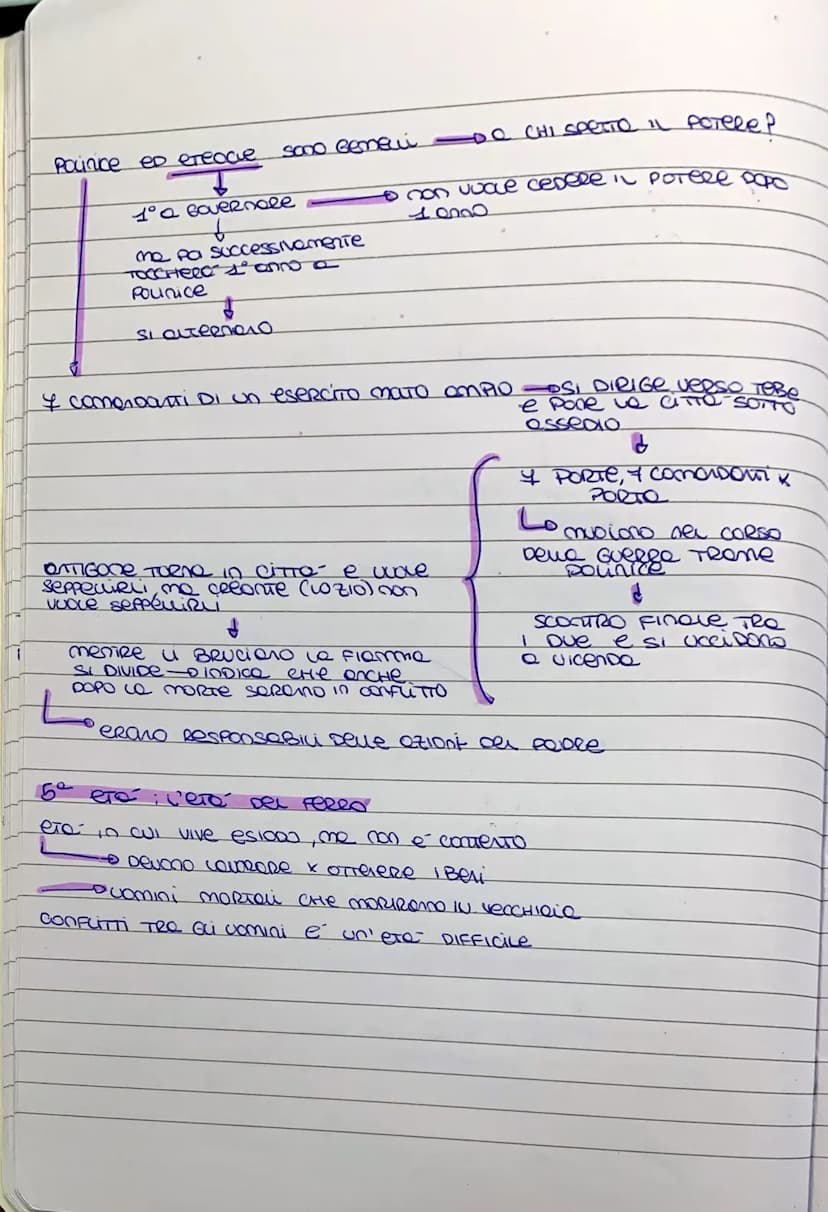 POLINICE ED ETEOCLE SONO GEMELLI → A CHI SPETTA IL POTERE?
1° A GOVERNARE → NON VUOLE CEDERE IL POTERE DOPO
1 ANNO
MA POI SUCCESSIVAMENTE
TOCCHERÀ 1° ANNO A
POLINICE
SI ALTERNANO
7 COMANDANTI DI UN ESERCITO MOLTO AMPIO → SI DIRIGE VERSO TEBE
E PONE LA CITTÀ SOTTO
ASSEDIO
7 PORTE, 7 COMANDANTI X
PORTA
MUOIONO NEL CORSO
DELLA GUERRA TRANNE
POLINICE
SCONTRO FINALE TRA
I DUE E SI UCCIDONO
A VICENDA
ANTIGONE TORNA IN CITTÀ E VUOLE
SEPPELLIRLI, MA CREONTE (LO ZIO) NON
VUOLE SEPPELLIRLI
MENTRE LI BRUCIANO LA FIAMMA
SI DIVIDE → INDICA CHE ANCHE
DOPO LA MORTE SARANNO IN CONFLITTO
ERANO RESPONSABILI DELLE AZIONI DEL PADRE
5ª ETÀ: L'ETÀ DEL FERRO
ETÀ IN CUI VIVE ESIODO, MA NON È CONTENTO
→ DEVONO LAVORARE X OTTENERE I BENI
→ UOMINI MORTALI CHE MORIRANNO IN VECCHIAIA
CONFLITTI TRA GLI UOMINI È UN'ETÀ DIFFICILE